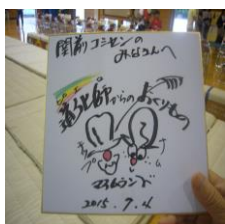 関前コミセンの
みなさんへ
道化師からのおくりもの
プ
ム
2015.7.4